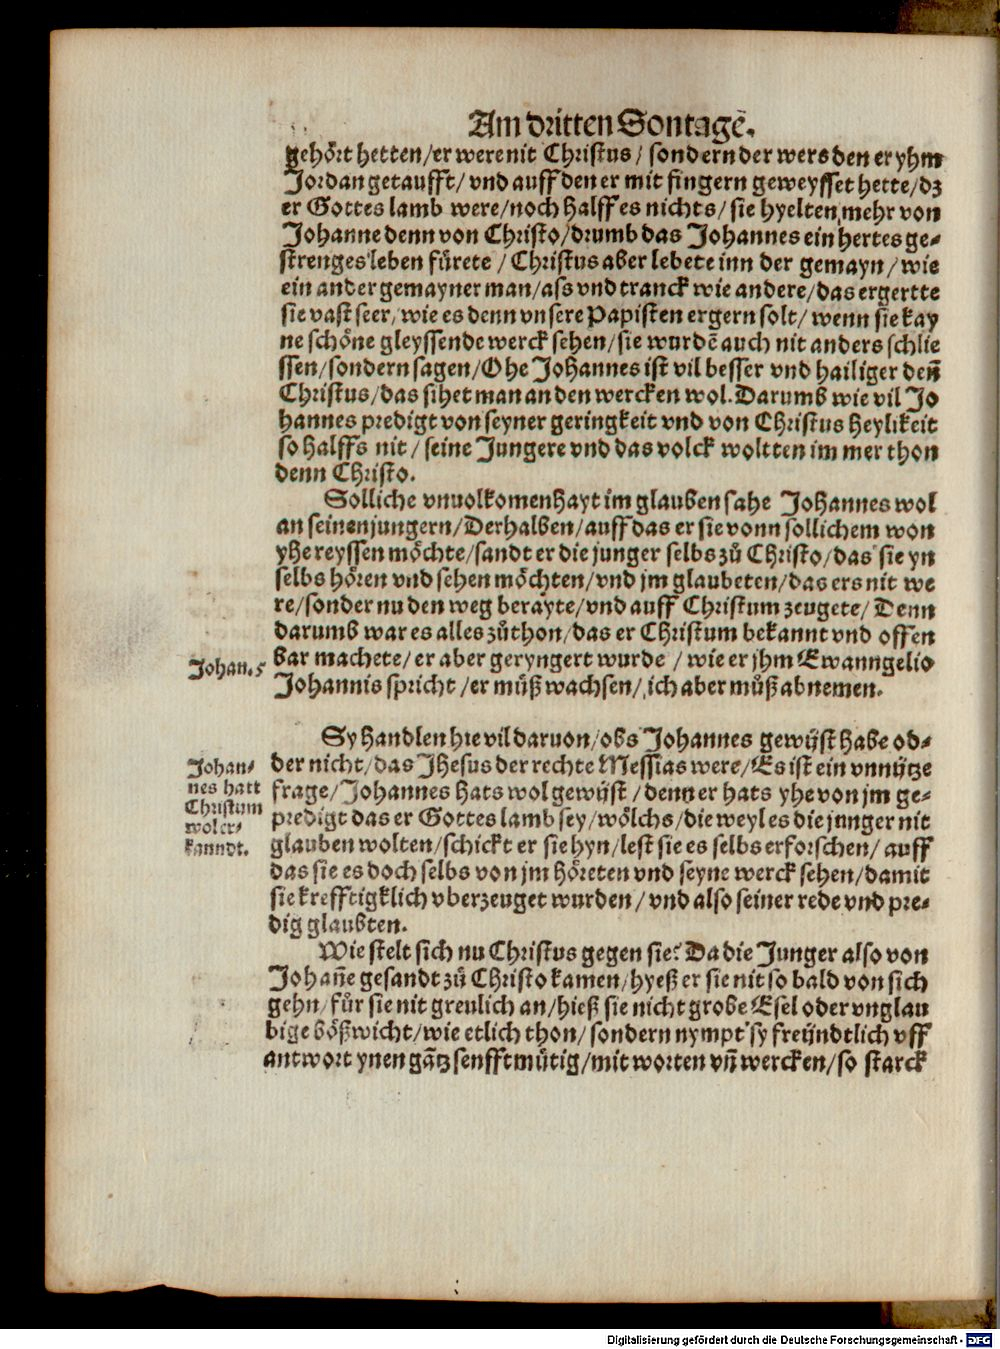 Am dritten Sontagē.
gehört hetten/er were nit Christus/ sondern der wers den er yhm
Jordan getaufft/ vnd auff den er mit fingern geweysset hette/dz
er Gottes lamb were/noch halff es nichts/ sie hyelten mehr von
Johanne denn von Christo/drumb das Johannes ein hertes ge-
strenges leben fürete / Christus aber lebete inn der gemayn/wie
ein ander gemayner man/ass vnd tranck wie andere/das ergertte
sie vast seer, wie es denn vnsere Papisten ergern solt/ wenn sie kay
ne schöne gleyssende werck sehen/sie wurdē auch nit anders schlie
ssen/sondern sagen/Ohe Johannes ist vil besser vnd hailiger deñ
Christus/das sihet man an den wercken wol. Darumb wie vil Jo
hannes predigt von seyner geringkeit vnd von Christus heylikeit
so halffs nit / seine Jungere vnd das volck woltten im mer thon
denn Christo.
Solliche vnuolkomenhayt im glauben sahe Johannes wol
an seinen jungern/Derhalben/auff das er sie vonn sollichem won
yhe reyssen möchte/sandt er die junger selbs zů Christo/das sie yn
selbs hören vnd sehen möchten/vnd jm glaubeten/das ers nit we
re/sonder nu den weg berayte/vnd auff Christum zeugete/ Denn
darumb war es alles zůthon/das er Christum bekannt vnd offen
Johan.5
bar machete/er aber geryngert wurde / wie er jhm Ewanngelio
Johannis spricht/er můß wachsen/ich aber můß abnemen.
Sy handlen hie vil daruon/obs Johannes gewÿst habe od-
Johan-
nes hatt
Christum
wol er-
kanndt.
der nicht/das Jhesus der rechte Messias were/Es ist ein vnnÿtze
frage/Johannes hats wol gewÿst/denn er hats yhe von jm ge-
predigt das er Gottes lamb sey/wölchs/die weyl es die junger nit
glauben wolten/schickt er sie hyn/lest sie es selbs erforschen/ auff
das sie es doch selbs von jm höreten vnd seyne werck sehen/damit
sie krefftigklich vberzeuget wurden/vnd also seiner rede vnd pre-
dig glaubten.
Wie stelt sich nu Christus gegen sie? Da die Junger also von
Johañe gesandt zů Christo kamen/hyeß er sie nit so bald von sich
gehn/für sie nit greulich an/hieß sie nicht grobe Esel oder vnglau
bige bößwicht/wie etlich thon/sondern nympt sy freÿndtlich vff
antwort ynen gātz senfftmütig/mit worten vñ wercken/so starck
Digitalisierung gefördert durch die Deutsche Forschungsgemeinschaft - DFG